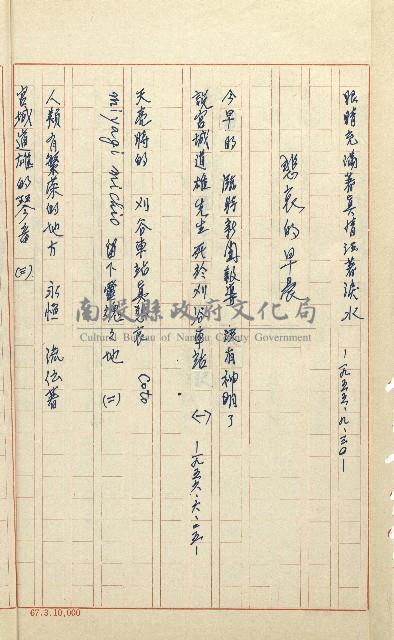 眼睛充滿著真情泣著淚水
—一九五五、九、三〇—
悲哀的早晨
今早的 臨時新聞報導 沒有神明了
說宮城道雄先生死於刈谷車站 (一)
—一九五六、六、二五—
天亮時的 刈谷車站真悲哀 Coto
miyagi michio 留下靈魂之地 (二)
人類有繁榮的地方 永恒 流伝著
宮城道雄的琴音 (三)
南投縣政府文化局
Cultural Bureau of Nantou County Government
67.3.10,000